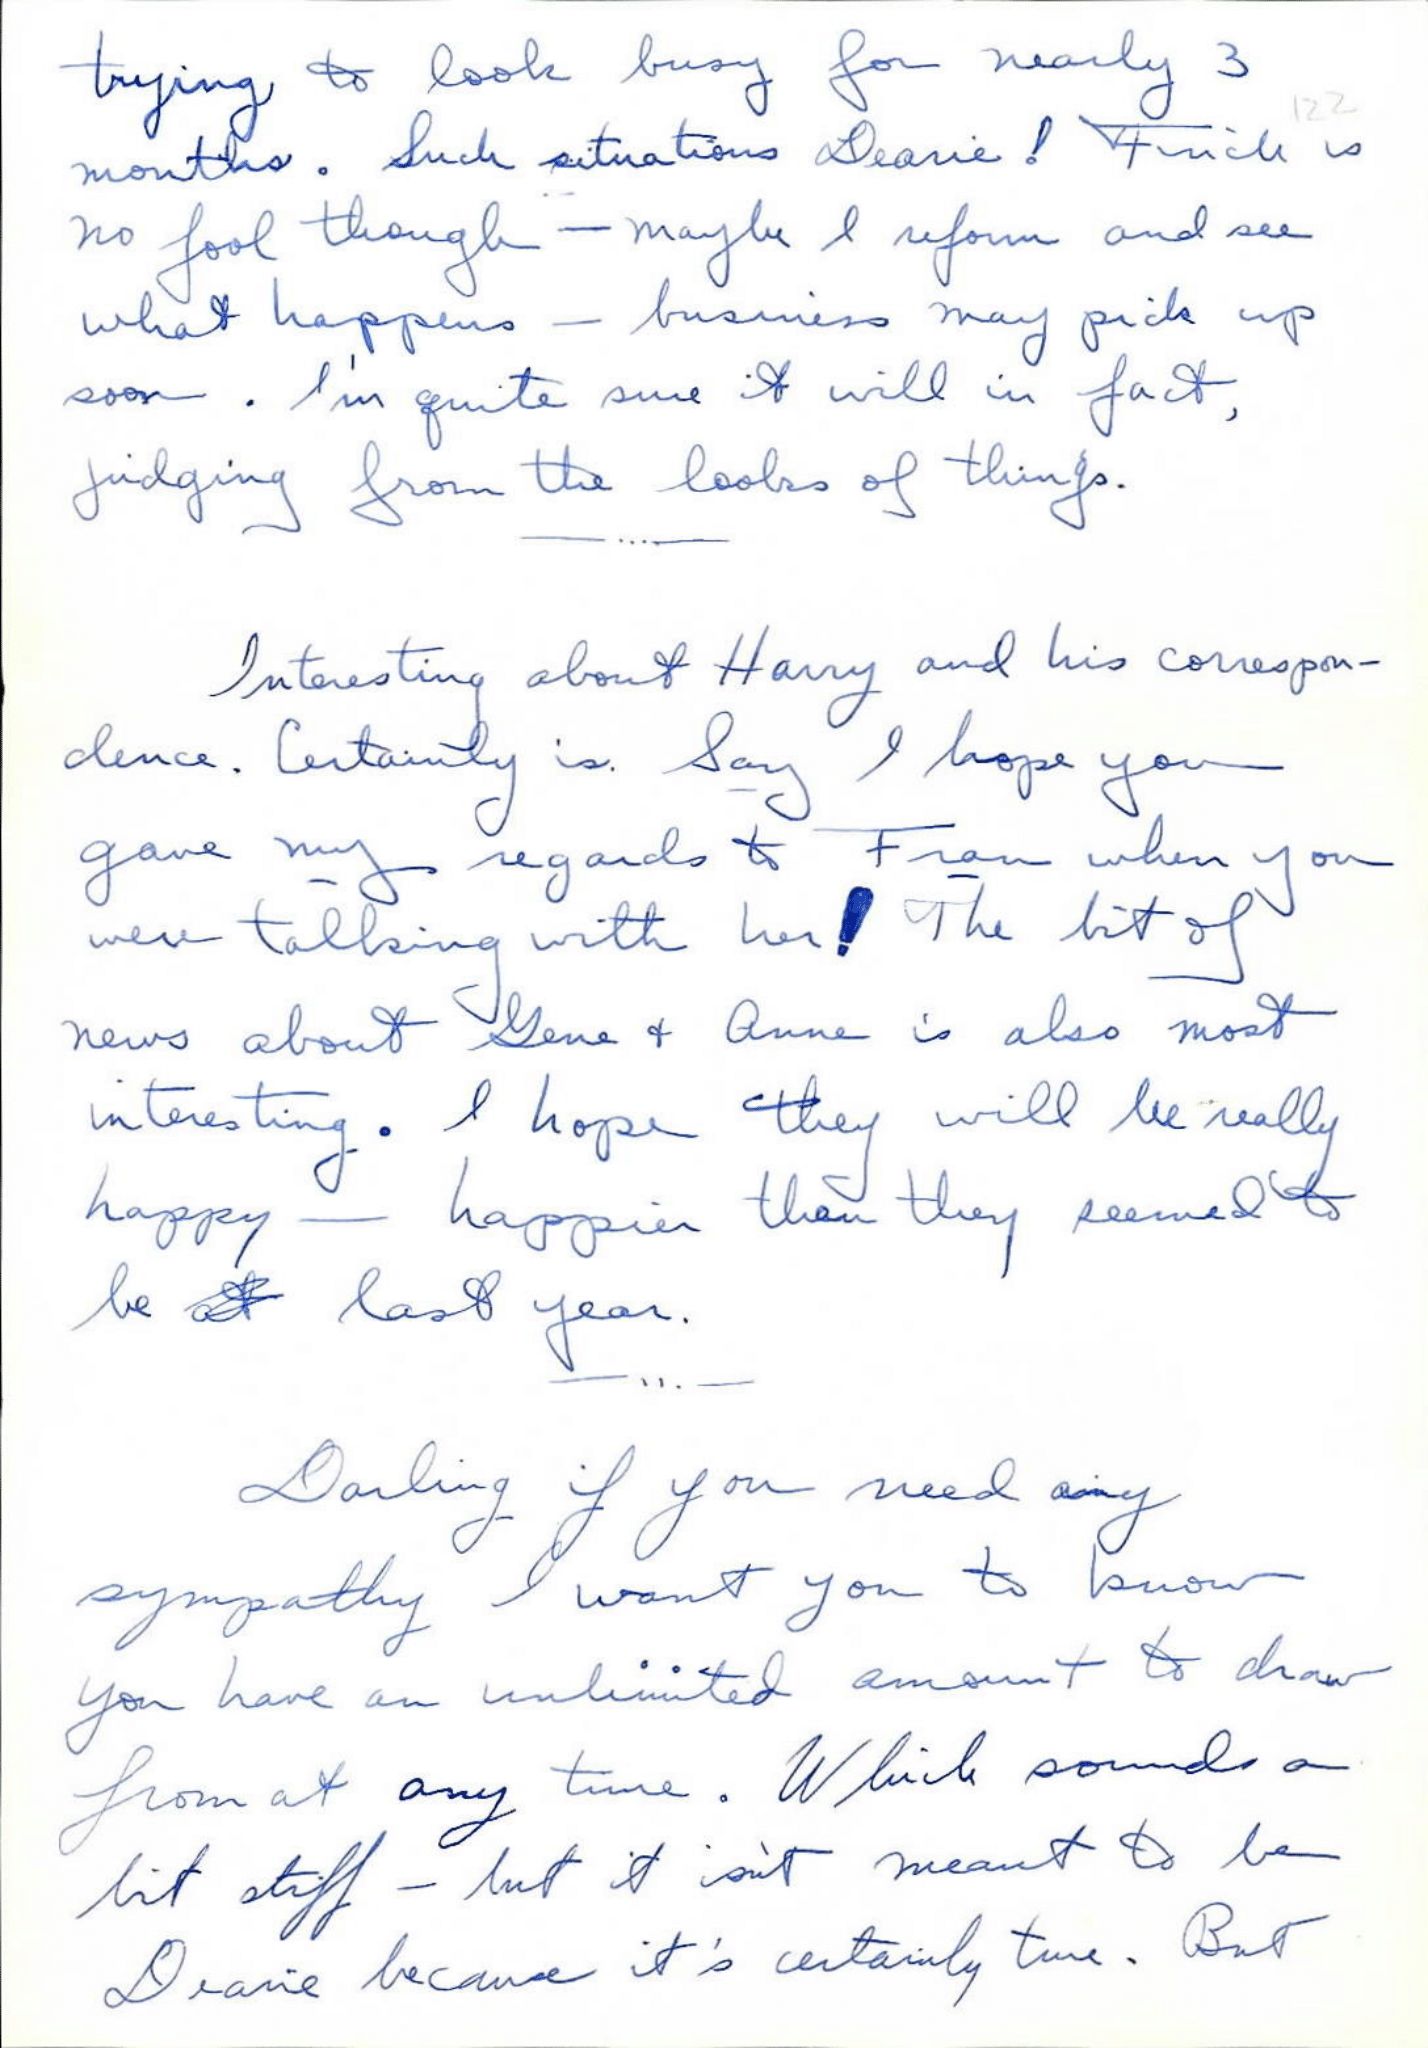 trying to look busy for nearly 3
122
months. Such situations Dearie! Frick is
no fool though — maybe I reform and see
what happens — business may pick up
soon. I'm quite sure it will in fact,
judging from the looks of things.
Interesting about Harry and his correspon-
dence. Certainly is. Say I hope you
gave my regards to Fran when you
were talking with her! The bit of
news about Gene & Anne is also most
interesting. I hope they will be really
happy — happier than they seemed to
be at last year.
Darling if you need any
sympathy I want you to know
you have an unlimited amount to draw
from at any time. Which sounds a
bit stiff – but it isn't meant to be
Dearie because it's certainly true. But